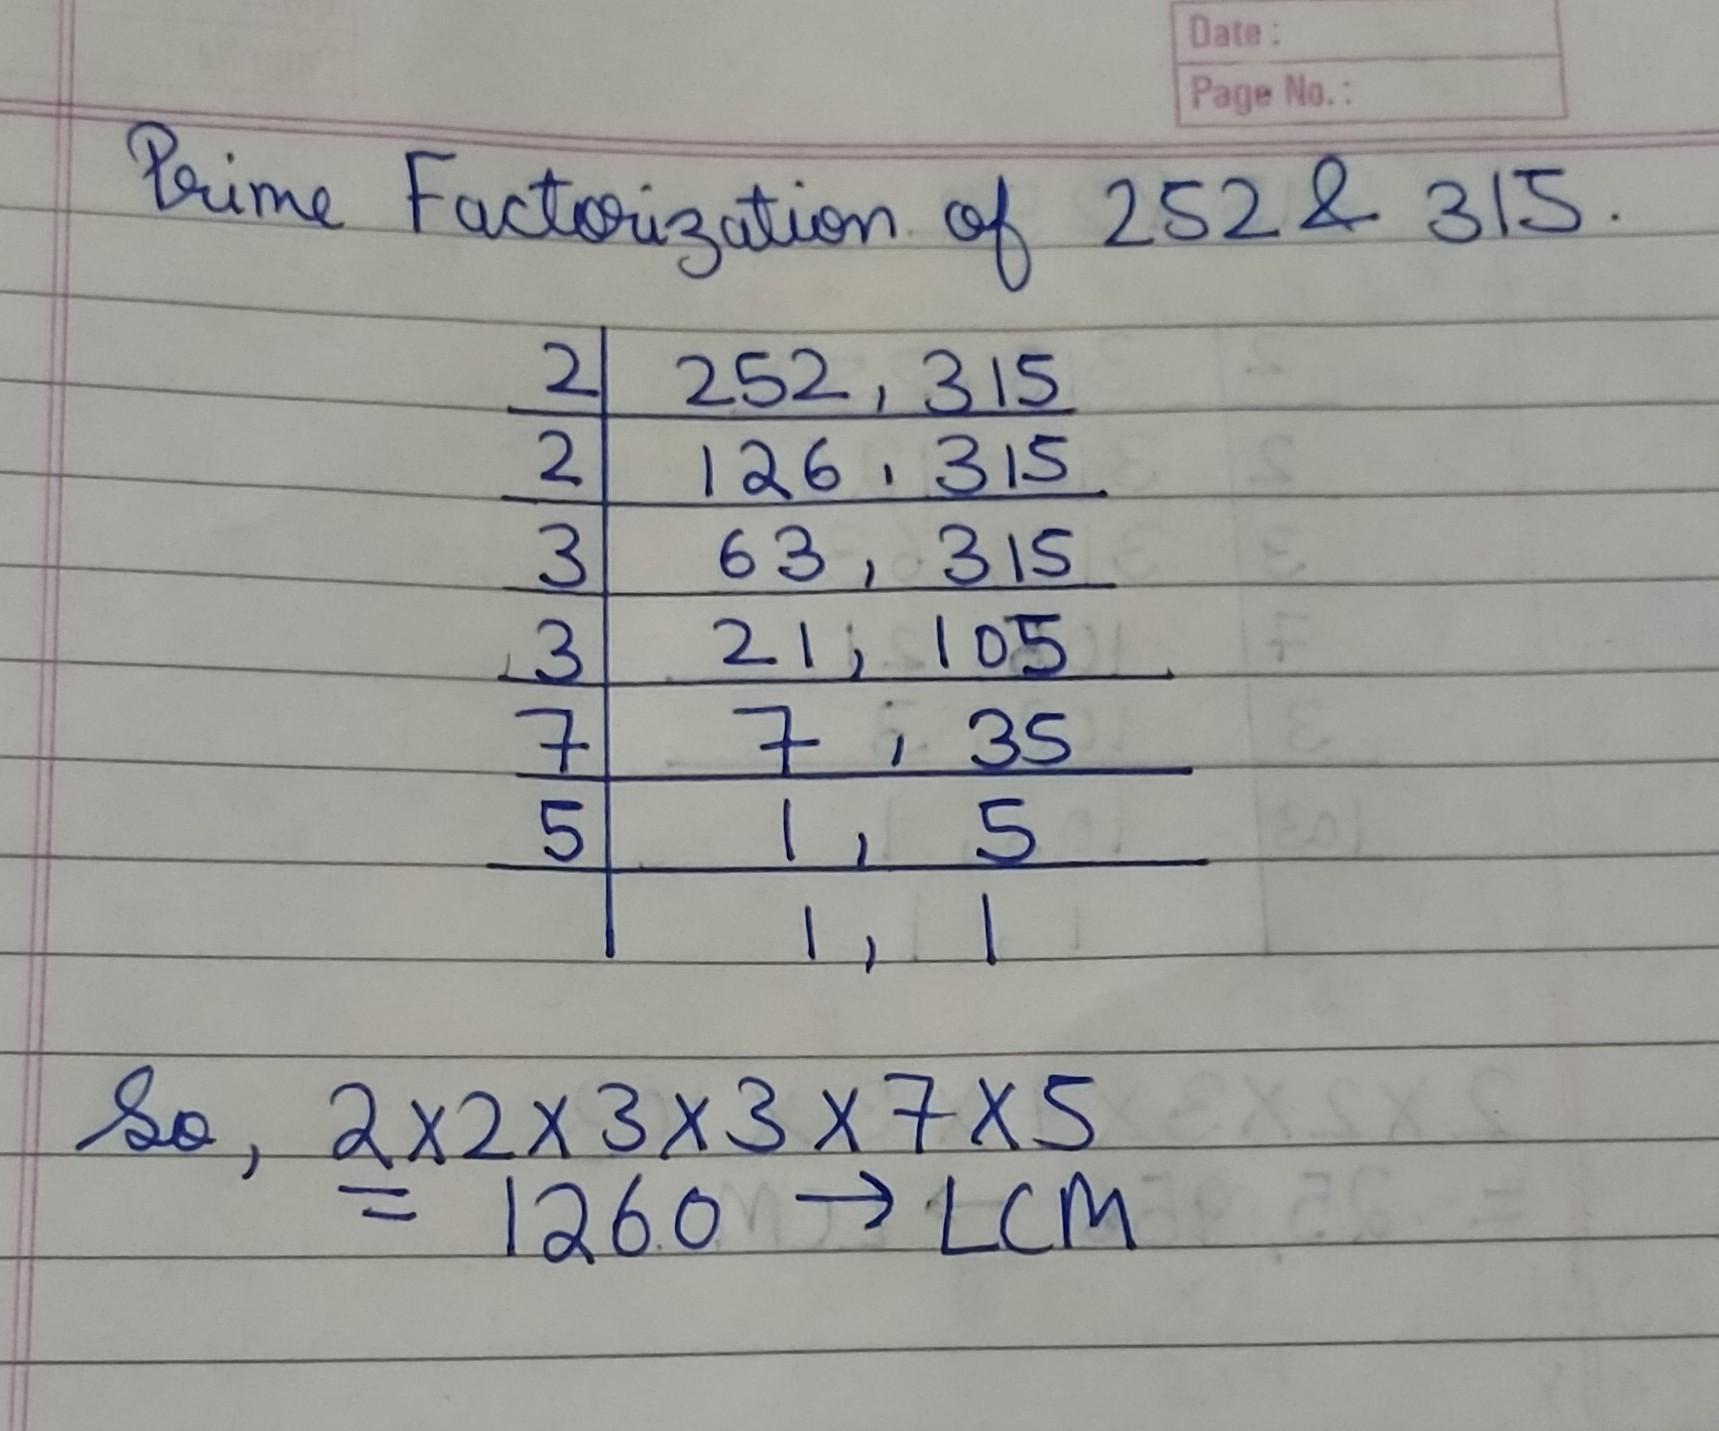 Date :
Page No. :
Prime Factorization of 252 & 315.
2 | 252, 315
2 | 126, 315
3 | 63, 315
3 | 21, 105
7 | 7, 35
5 | 1, 5
| 1, 1
So, 2×2×3×3×7×5
= 1260 → LCM